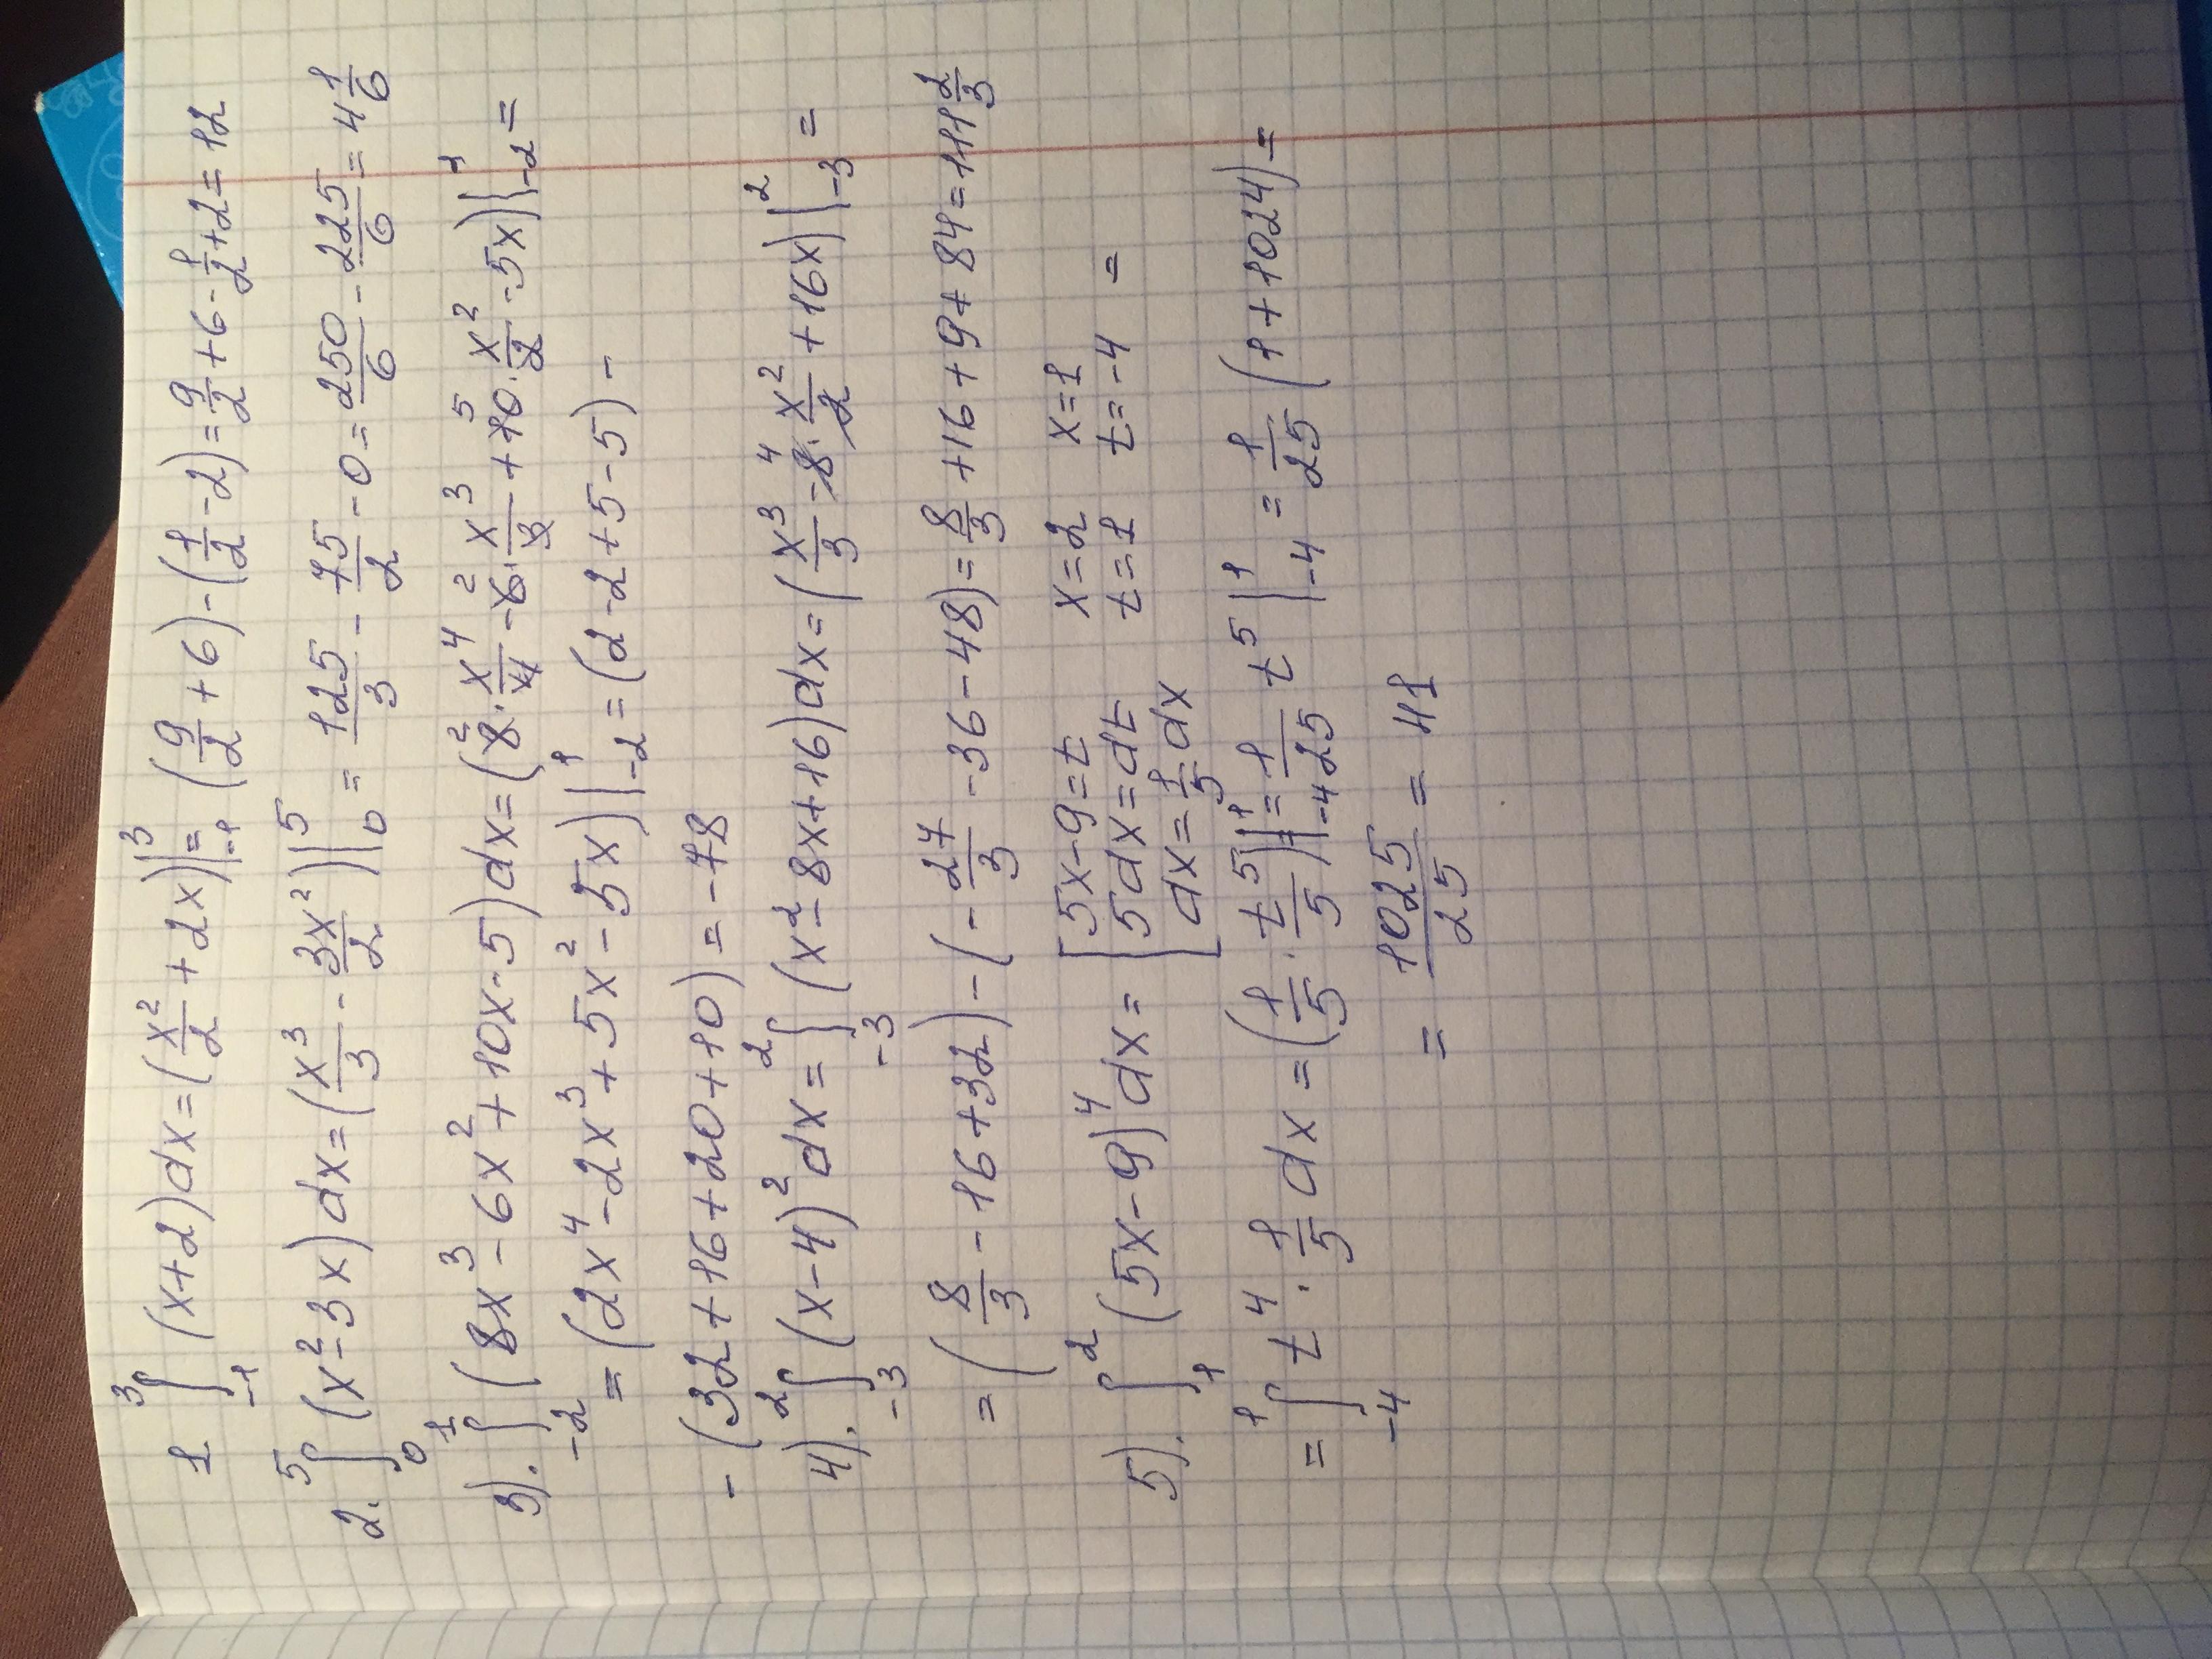 1 ∫₋₁³ (x+2)dx = (x²/2 + 2x)|₋₁³ = (9/2 + 6) - (1/2 - 2) = 9/2 + 6 - 1/2 + 2 = 12
2. ∫₀⁵ (x² - 3x)dx = (x³/3 - 3x²/2)|₀⁵ = 125/3 - 75/2 - 0 = 250/6 - 225/6 = 4 1/6
3). ∫₋₂¹ (8x³ - 6x² + 10x - 5)dx = (8² · x⁴/4 - 6² · x³/3 + 10⁵ · x²/2 - 5x)|₋₂¹ =
= (2x⁴ - 2x³ + 5x² - 5x)|₋₂¹ = (2 - 2 + 5 - 5) -
- (32 + 16 + 20 + 10) = -78
4). ∫₋₃² (x-4)² dx = ∫₋₃² (x² - 8x + 16)dx = (x³/3 - 8⁴ · x²/2 + 16x)|₋₃² =
= (8/3 - 16 + 32) - (-27/3 - 36 - 48) = 8/3 + 16 + 9 + 84 = 111 2/3
5). ∫₁² (5x-9)⁴ dx = [5x-9=t x=2 x=1
5dx=dt t=1 t=-4 =
dx=1/5 dx
= ∫₋₄¹ t⁴ · 1/5 dx = (1/5 · t⁵/5)|₋₄¹ = 1/25 t⁵|₋₄¹ = 1/25 (1+1024) =
= 1025/25 = 41